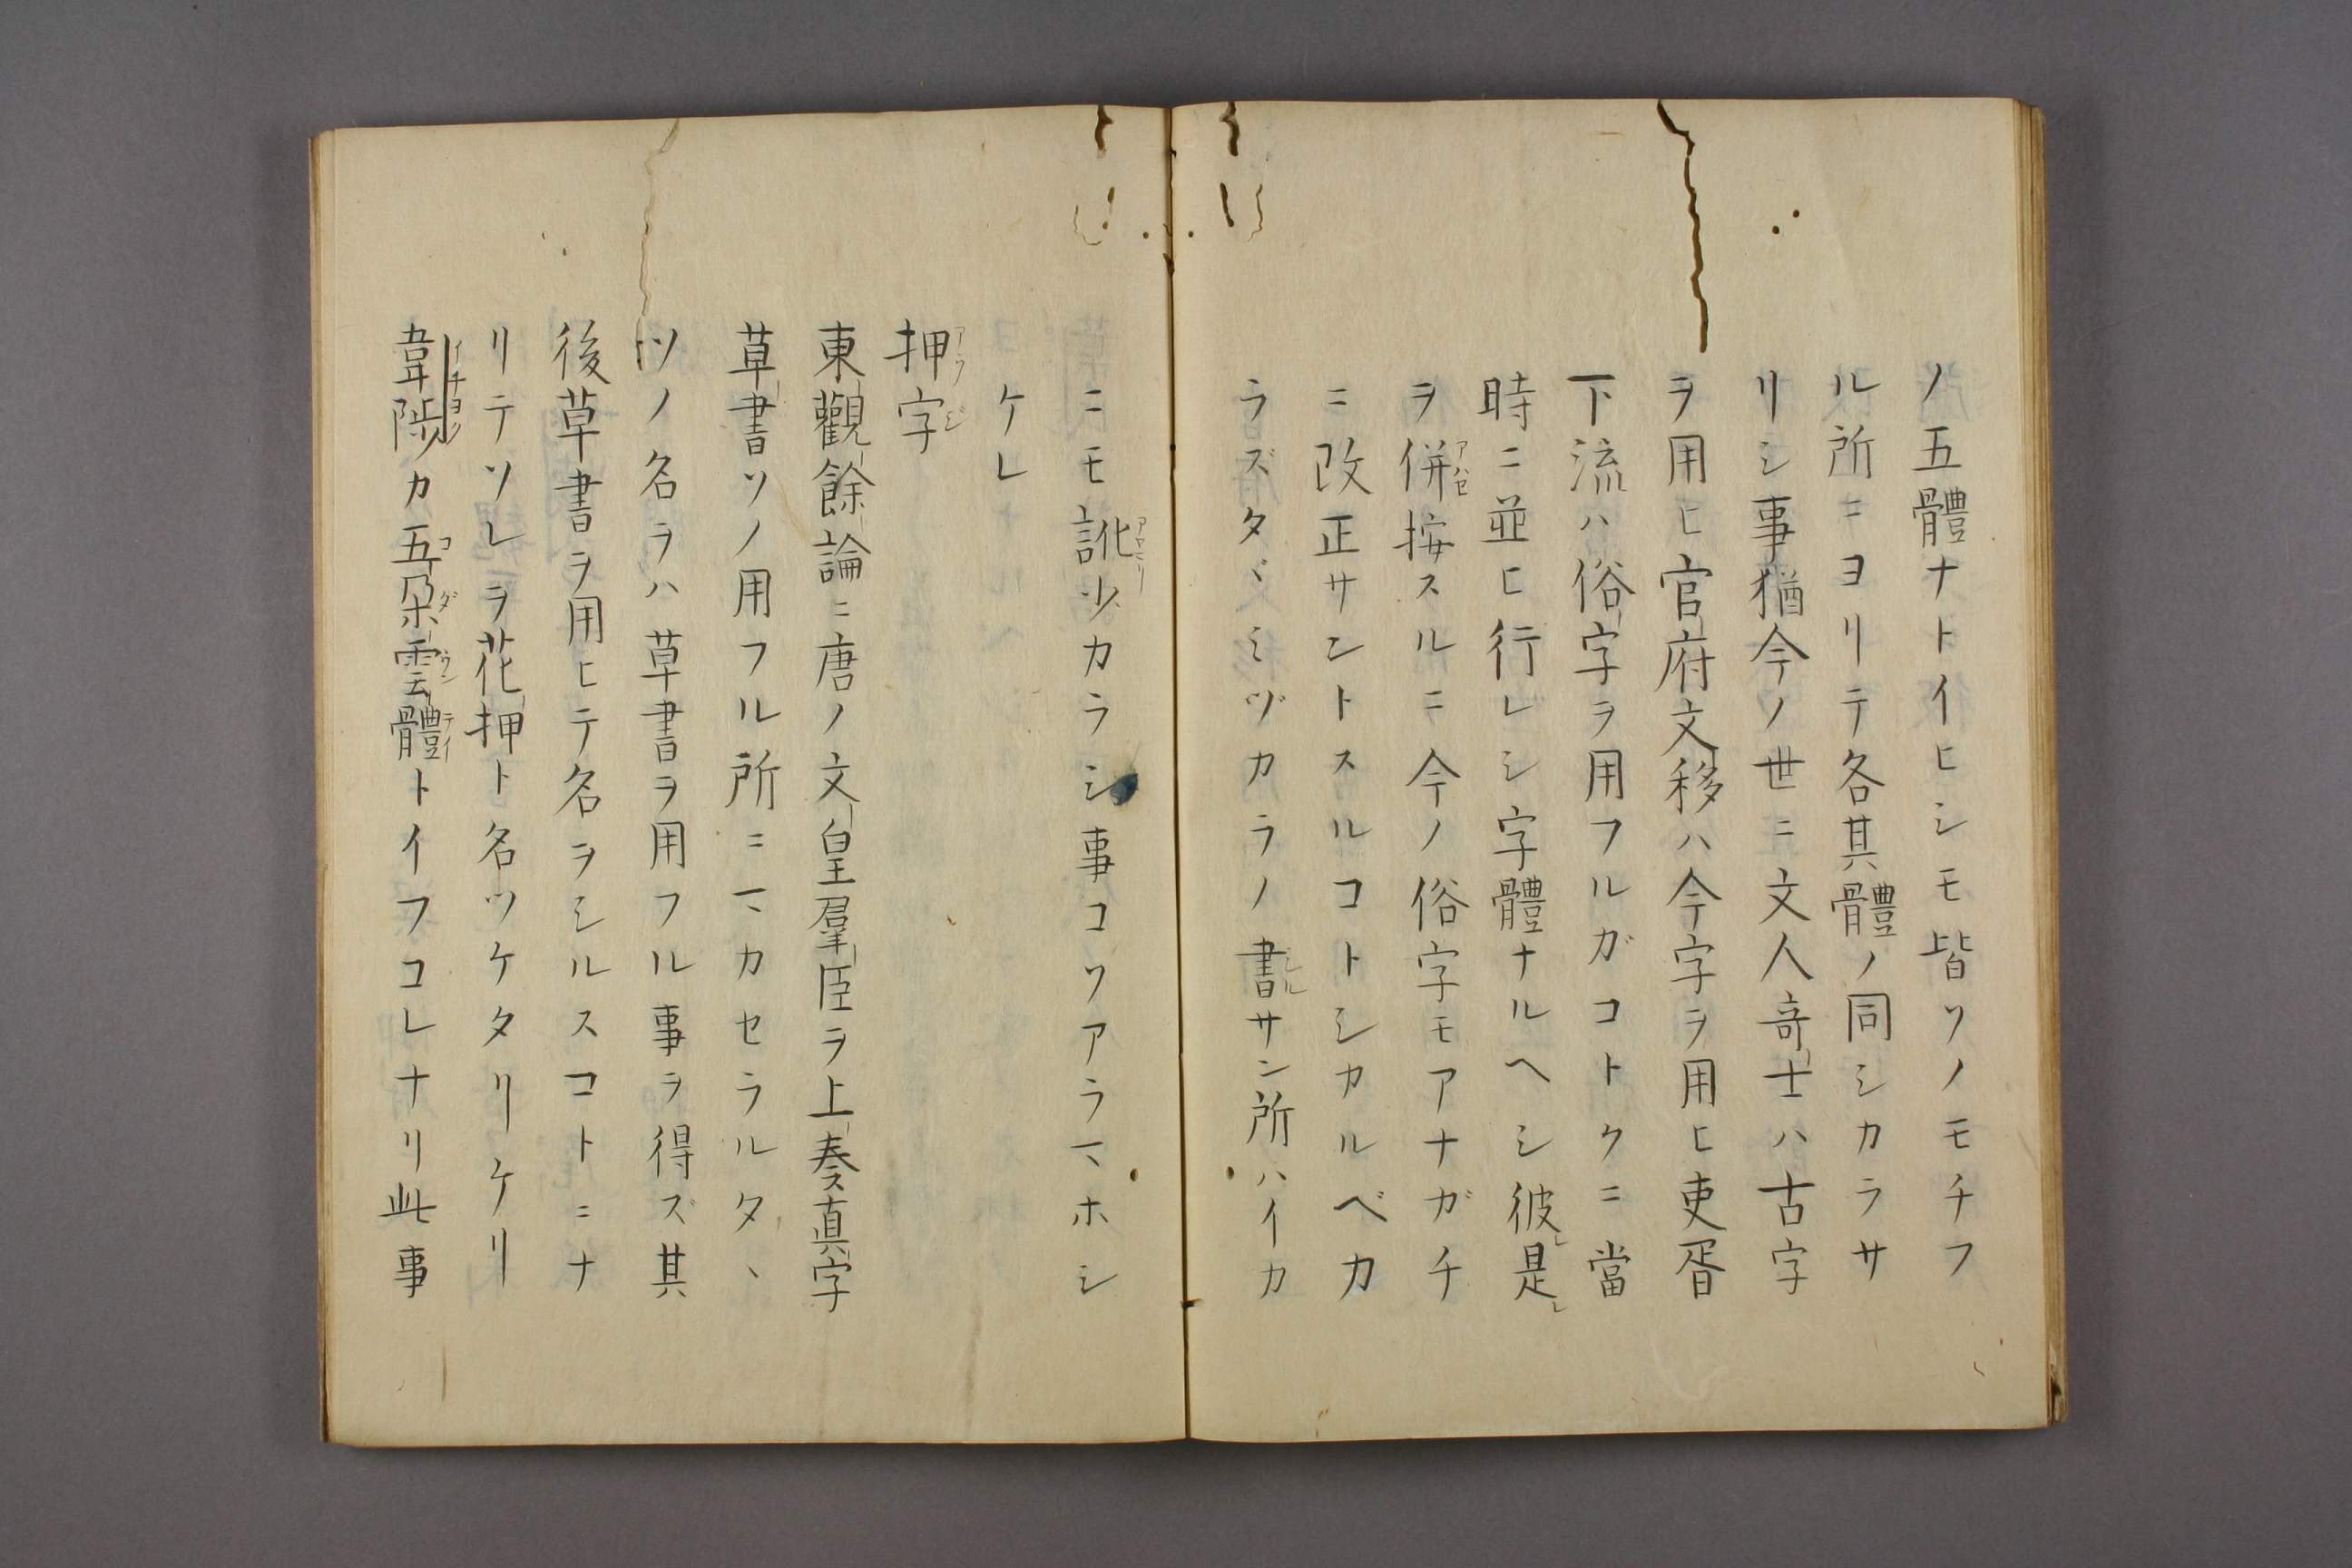 ノ五體ナトイヒシモ皆ソノモチフ
ル所ニヨリテ各其體ノ同シカラサ
リシ事猶今ノ世ニ文人奇士ハ古字
ヲ用ヒ官府文移ハ今字ヲ用ヒ吏胥
下流ハ俗字ヲ用フルガコトクニ當
時ニ並ヒ行レシ字體ナルヘシ彼レ是レ
ヲ併アハセ按スルニ今ノ俗字モアナガチ
ニ改正サントスルコトシカルベカ
ラズタヾミヅカラノ書シルサン所ハイカ
ニモ訛アヤマリ少カラン事コソアラマホシ
ケレ
押アフ字ジ
東觀餘論ニ唐ノ文皇羣臣ヲ上奏真字
草書ソノ用フル所ニマカセラルタヽ
ソノ名ヲハ草書ヲ用フル事ヲ得ズ其
後草書ヲ用ヒテ名ヲシルスコトニナ
リテソレヲ花押ト名ツケタリケリ
韋陟イチヨクカ五コ朶ダ雲ウン體テイトイフコレナリ此事